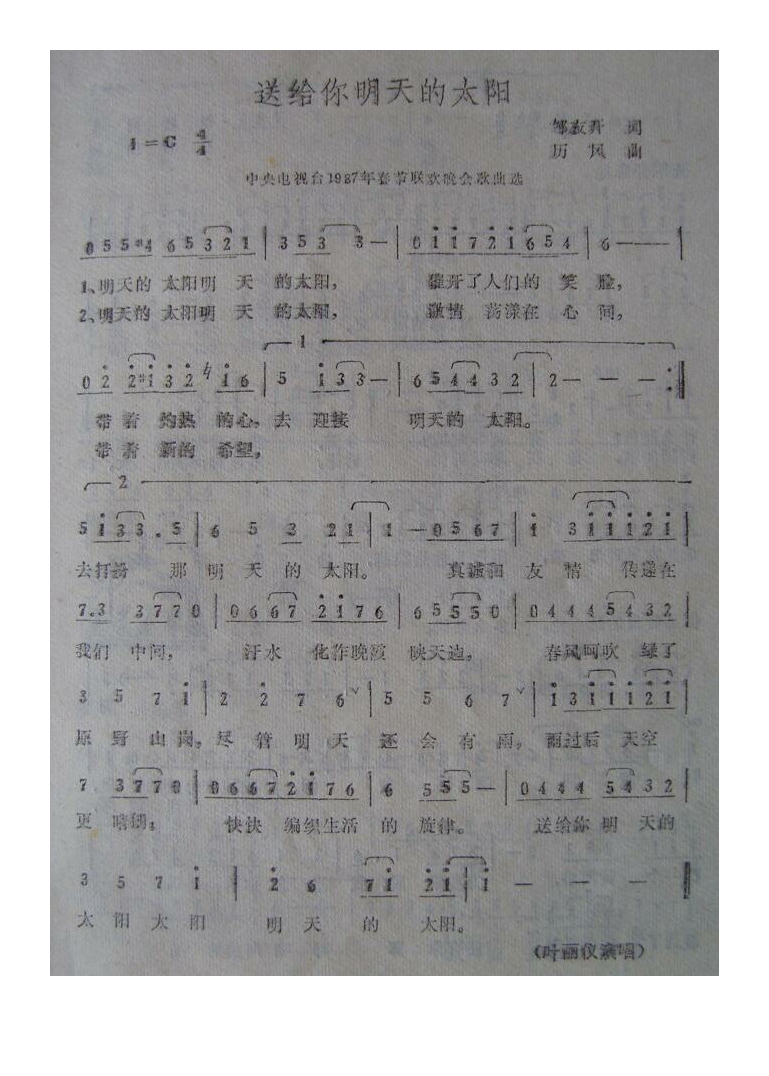 送给你明天的太阳
1=C 4/4
邹友开 词
历风 曲
中央电视台1987年春节联欢晚会歌曲选
0 5 5 #4 6 5 3 2 1 | 3 5 3 3 — | 0 1 1 7 2 1 6 5 4 | 6 — — — |
1、明天的 太阳明 天 的太阳, 催开了人们的 笑 脸,
2、明天的 太阳明 天 的太阳, 激情 荡漾在 心 间,
1
0 2 2 #1 3 2 1 6 | 5 1 3 3 — | 6 5 4 4 3 2 | 2 — — — :|
带着 灼热 的心,去 迎接 明天的 太阳。
带着 新的 希望,
2
5 1 3 3 . 5 | 6 5 3 2 1 | 1 — 0 5 6 7 | 1 3 1 1 1 2 1 |
去打扮 那 明 天 的 太阳。 真诚和 友 情 传递在
7 . 3 3 7 7 0 | 0 6 6 7 2 1 7 6 | 6 5 5 5 0 | 0 4 4 4 5 4 3 2 |
我们 中间, 汗水 化作晚霞 映天边, 春风呵吹 绿了
3 5 7 1 | 2 2 7 6 ∨ | 5 5 6 7 ∨ | 1 3 1 1 1 2 1 |
原 野 山 岗,尽 管 明 天 还 会 有 雨, 雨过后 天空
7 3 7 7 0 | 0 6 6 7 2 1 7 6 | 6 5 5 5 — | 0 4 4 4 5 4 3 2 |
更 晴朗; 快快 编织生活 的 旋律。 送给你 明 天的
3 5 7 1 | 2 6 7 1 2 1 | 1 — — — ‖
太 阳 太 阳 明 天 的 太阳。
(叶丽仪演唱)